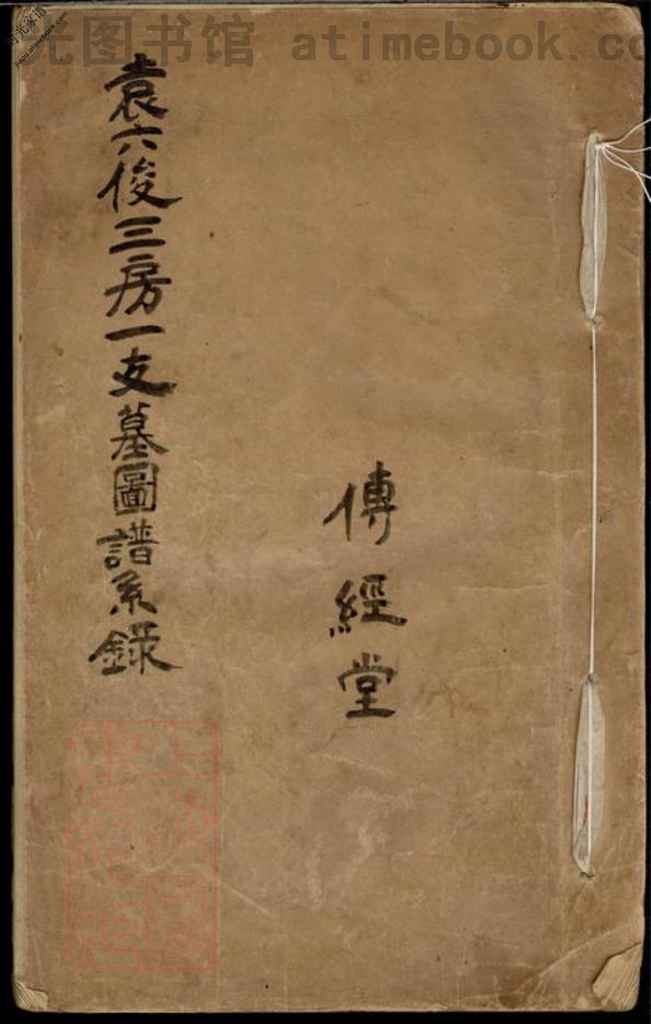 光图书馆 atimebook.co
傳經堂
袁六俊三房一支墓圖譜系錄